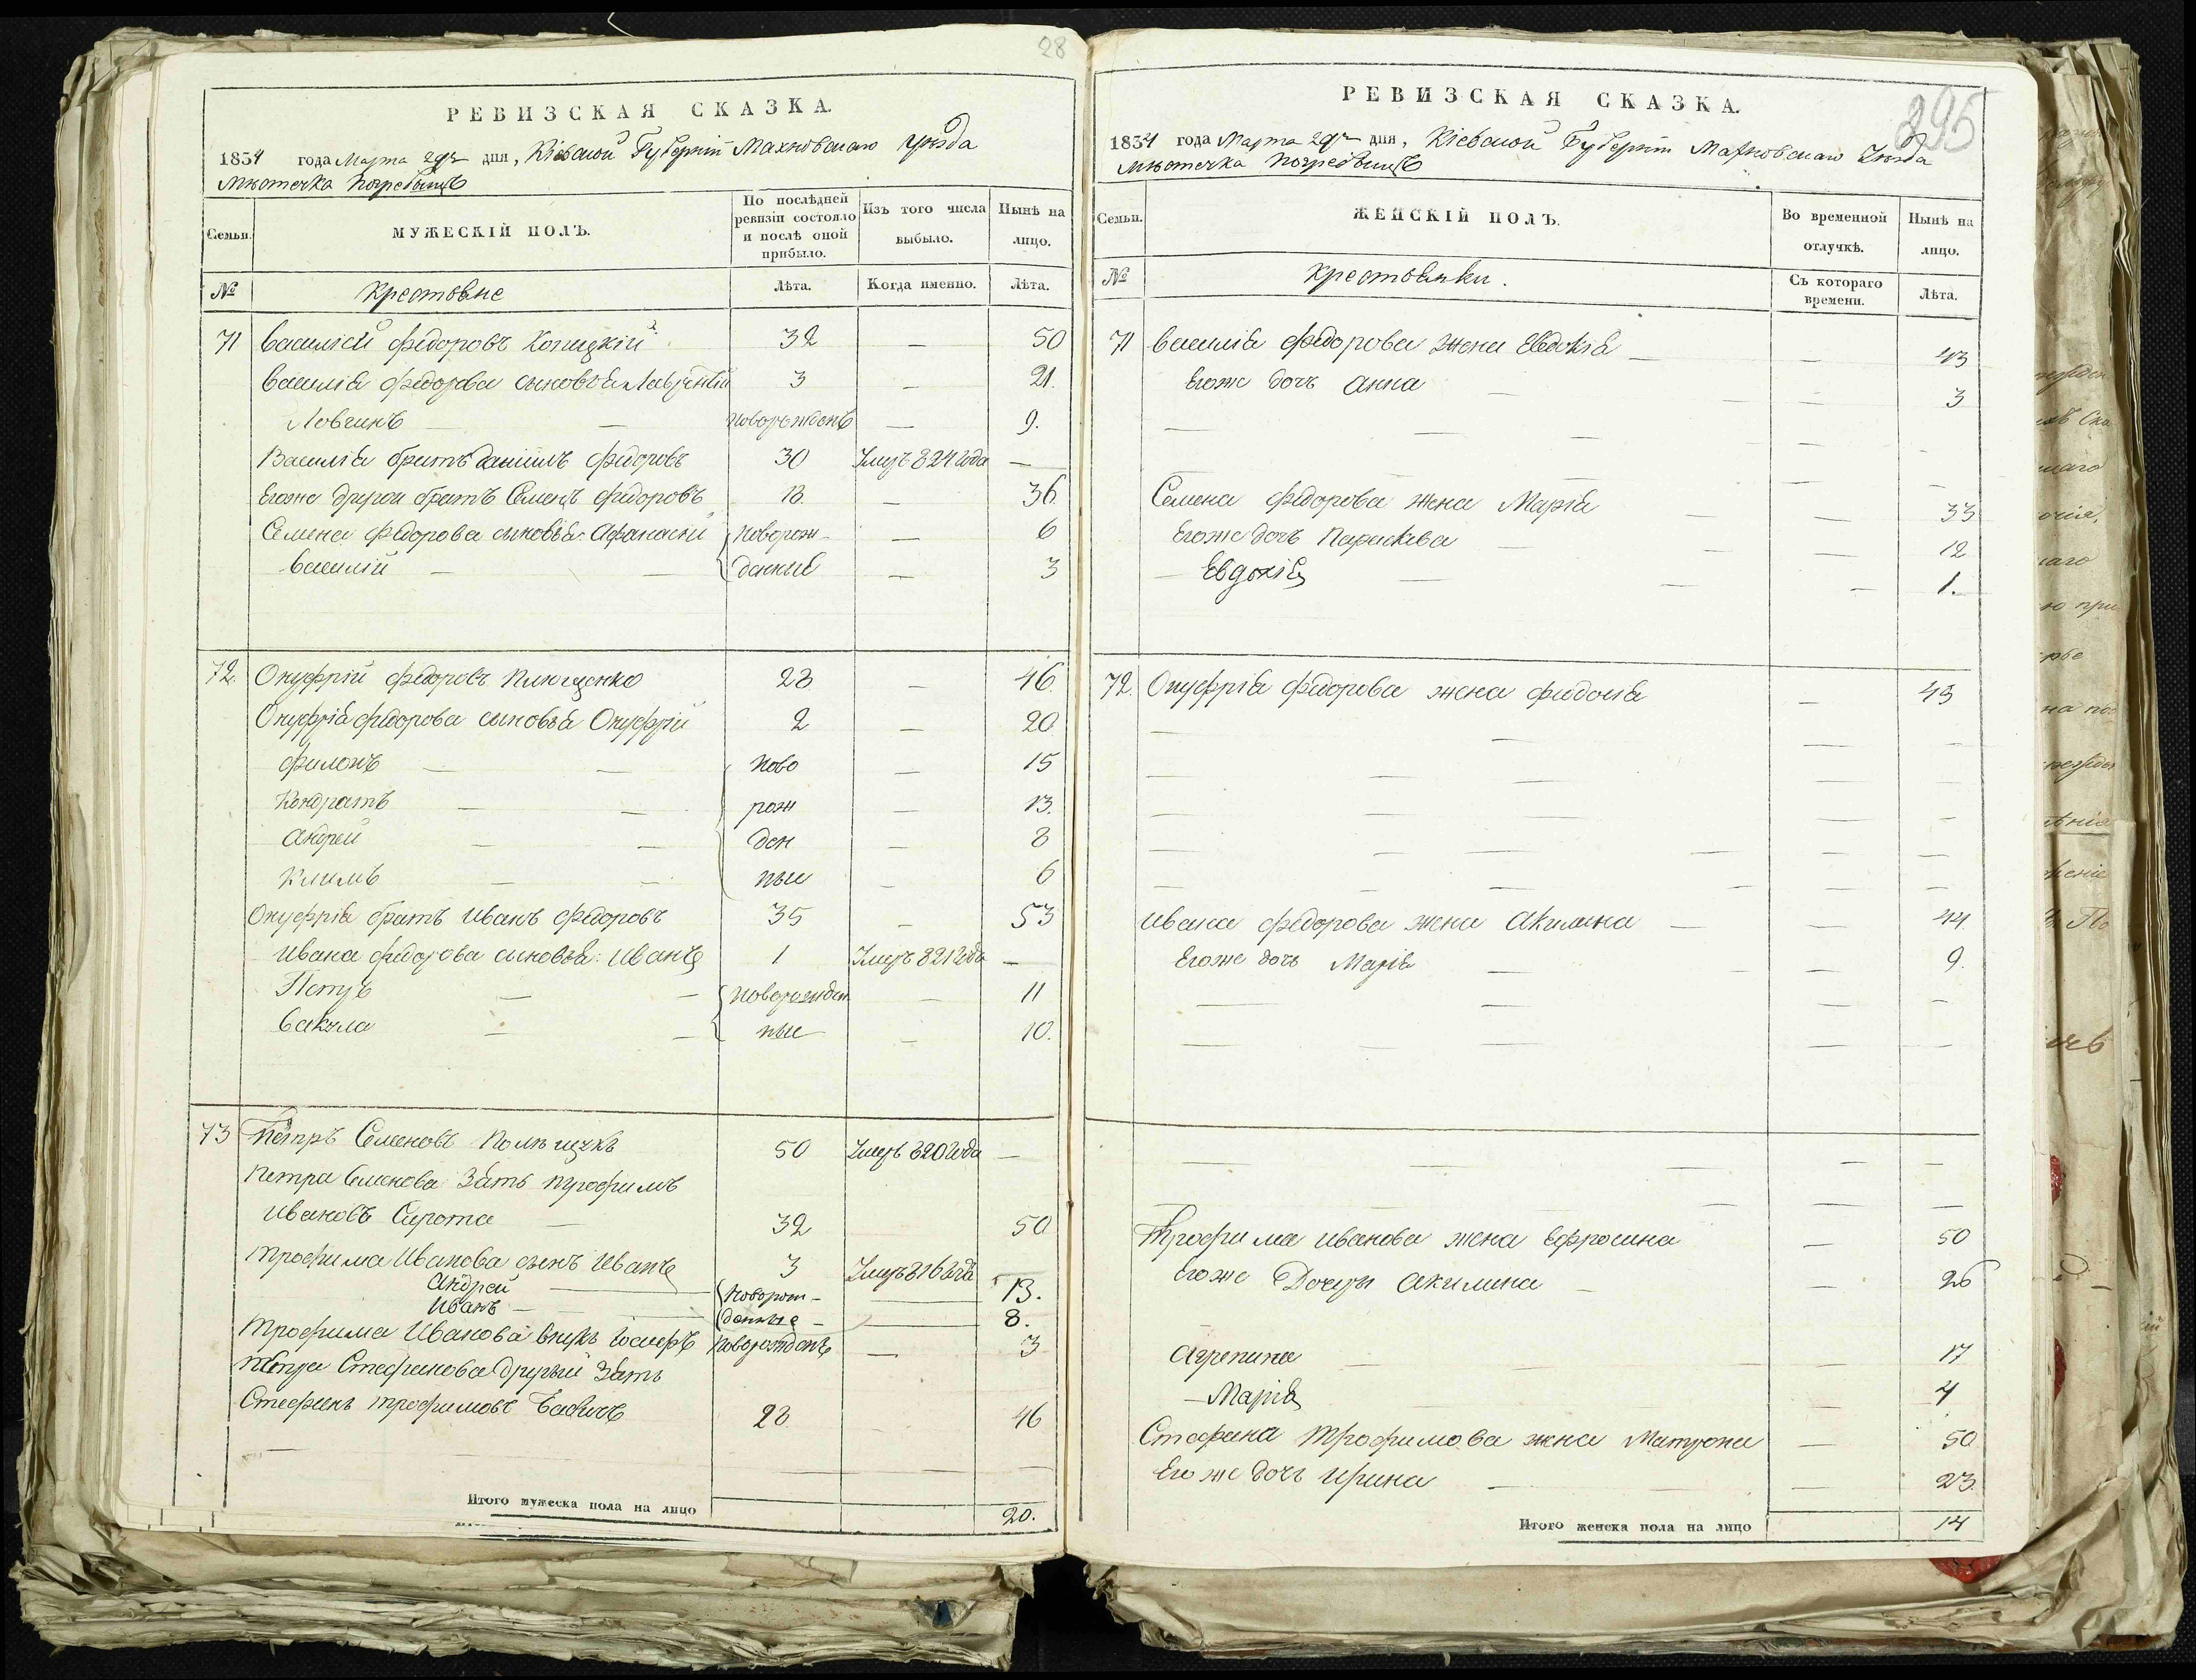 28
РЕВИЗСКАЯ СКАЗКА.
1834 года Марта 29го дня, Кіевской Губерніи Махновскаго Уѣзда
Мѣстечка Погребищъ
Семьи. МУЖЕСКІЙ ПОЛЪ. По послѣдней ревизіи состояло и послѣ оной прибыло. Изъ того числа выбыло. Нынѣ на лицо.
№ Крестьяне Лѣта. Когда именно. Лѣта.
71 Василій Федоровъ 32 — 50
Василія Федорова сыновья Лаврентій 3 — 21.
Логвинъ — — новорожденъ — 9.
Василія братъ Даніилъ Федоровъ 30 Умеръ 824 года —
Егоже другой братъ Семенъ Федоровъ 18. — 36.
Семена Федорова сыновья: Афанасій новорож- — 6
Василій — — данные — 3
72. Онуфрій Федоровъ 28 — 46.
Онуфрія Федорова сыновья Онуфрій 2 — 20
Филонъ — — ново — 15
Кондратъ — — рож — 13.
Андрей — — ден — 8
Климъ — — ные — 6
Онуфрія братъ Иванъ Федоровъ 35 — 53
Ивана Федорова сыновья: Иванъ 1 Умеръ 821 года —
Петръ — — новорожден — 11
Вакула — — ные — 10.
73 Петръ Семеновъ 50 Умеръ 820 года —
Петра Семенова Зять Трофимъ
Ивановъ Сирота — 32 50
Трофима Иванова сынъ Иванъ 3 Умеръ 816 года —
Андрей — новорож- — 13.
Иванъ — данные — — 8.
Трофима Иванова внукъ Іосифъ новорожденъ — 3
Петра Стефанова другий Зять
Стефанъ Трофимовъ 28 — 46
Итого мужеска пола на лицо 20.
295
РЕВИЗСКАЯ СКАЗКА.
1834 года Марта 29го дня, Кіевской Губерніи Махновскаго Уѣзда
Мѣстечка Погребищъ
Семьи. ЖЕНСКІЙ ПОЛЪ. Во временной отлучкѣ. Нынѣ на лицо.
№ Крестьянки. Съ котораго времени. Лѣта.
71 Василія Федорова жена Евдокія — — 43
Егоже дочъ Анна — — — 3
Семена Федорова жена Марія — — 33
Егоже дочъ Параскева — — — 12
— Евдокія — — — 1.
72. Онуфрія Федорова жена Федосія — 43
Ивана Федорова жена Акилина — — 44
Егоже дочъ Марія — — — 9.
Трофима Иванова жена Ефросина — 50
Егоже Дочери Акилина — — 26
Агрепина — — — 17
— Марія — — — 4
Стефана Трофимова жена Матрона — 50
Его же дочъ Ирина — — — 23.
Итого женска пола на лицо 14